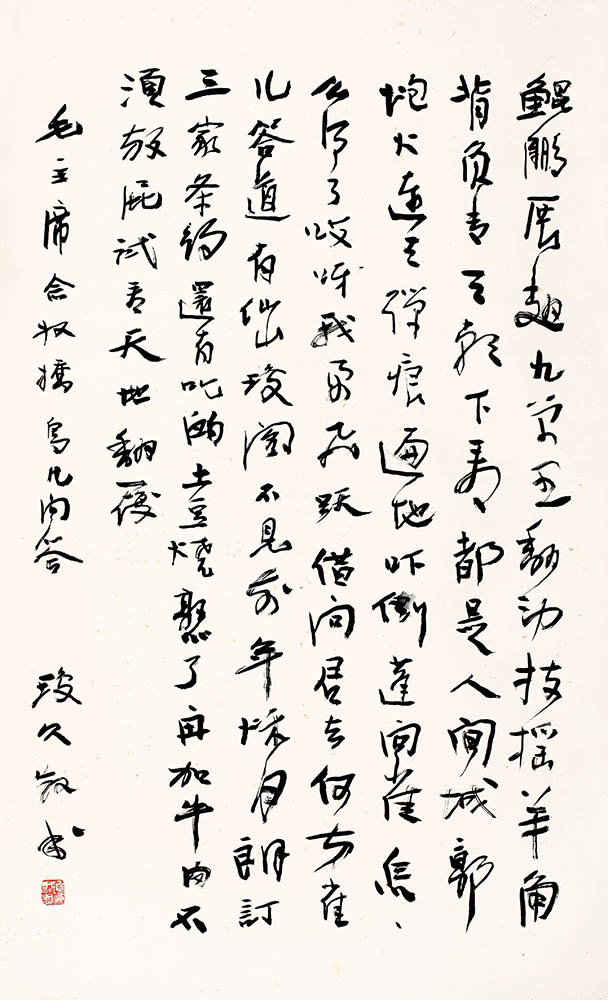 鯤鹏展翅九万里翻动扶摇羊角
背负青天朝下看都是人间城郭
炮火连天彈痕遍地吓倒蓬间雀怎
么得了哎呀我要飞跃借问君去何方雀
儿答道有仙山琼阁不见前年秋月朗訂
三家条约還有吃的土豆燒熟了再加牛肉不
须放屁试看天地翻覆
毛主席念奴娇鸟儿问答 琼久敬书